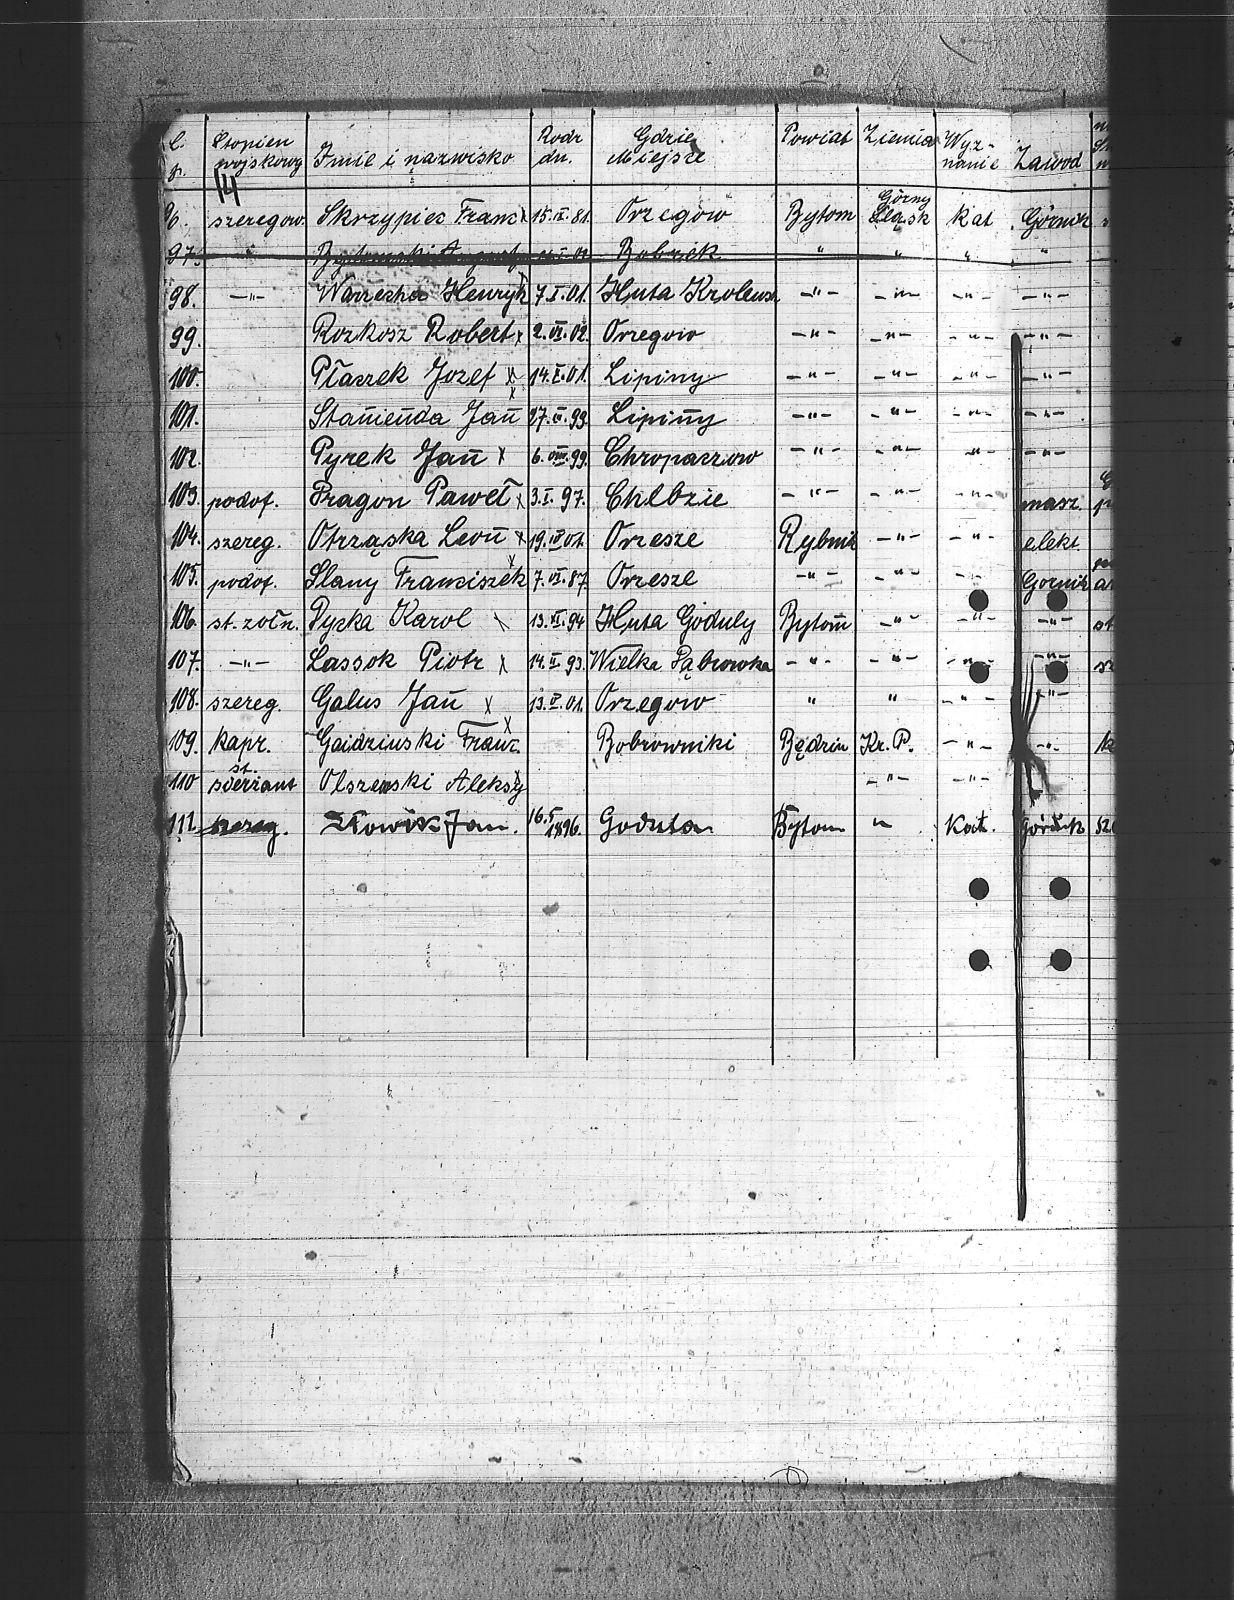 L. p. Stopien wojskowy Imie i nazwisko Rodz dn. Gdzie Miejsze Powiat Ziemia Wyz-nanie Zawod
14
96. szeregow. Skrzypiec Franc x 15.IX.81. Orzegow Bytom Górny Śląsk Kat Górnik
97. " Bobrek " " " "
98. -"- Warzecha Henryk 7.I.01. Huta Krolewsk -"- -"- -"- -"-
99. Rozkosz Robert x 2.VI.02. Orzegow -"- -"- -"- -"-
100. Ptaszek Jozef x 14.I.01. Lipiny -"- -"- -"- -"-
101. Stanienda Jan x 27. 99. Lipiny -"- -"- -"- -"-
102. Pyrek Jan x 6.VIII.99. Chropaczow -"- -"- -"- -"-
103. podof. Pragon Paweł x 3.I.97. Chebzie -"- -"- -"- masz.
104. szereg. Otrząska Leon x 19. 01. Orzesze Rybnik -"- -"- elekt.
105. podof. Slany Franciszek x 7.VI.87. Orzesze -"- -"- -"- Gornik
106. st. żołn. Pyzka Karol x 13.XI.94 Huta Goduly Bytom -"- -"- -"- st
107. -"- Lassok Piotr x 14.II.93. Wielka Dąbrowka -"- -"- -"- -"- sz
108. szereg. Galus Jan x 13.V.01. Orzegow " " -"- -"-
109. kapr. Gaidzinski Franc. x Bobrowniki Będzin Kr. P. -"- -"- k
110 st. sierżant Olszewski Aleksy x -"- -"-
111. szereg. Słowik Jan. 16.5 1896. Godula Bytom " Kat. górnik sze